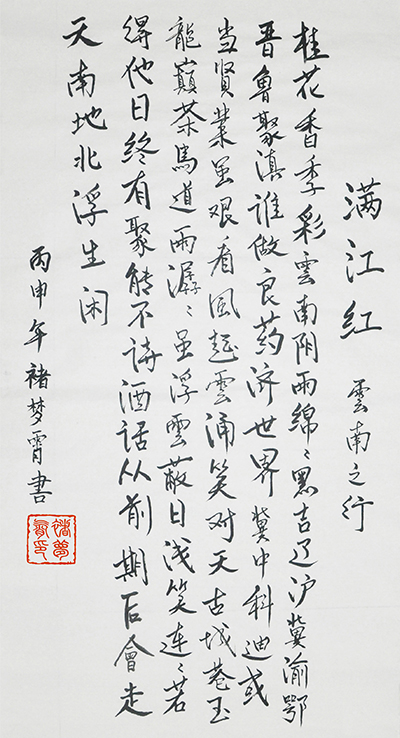 满江红 雲南之行
桂花香季彩雲南阴雨綿〻黑吉辽沪冀渝鄂
晋鲁聚滇谁做良药济世界冀中科迪或
当贤業虽艰看風起雲涌笑对天古城巷玉
龍巔茶馬道雨潺〻虽浮雲蔽日浅笑连〻若
得他日终有聚能不诗酒话从前期后會走
天南地北浮生闲
丙申年褚梦霄書
褚夢霄印